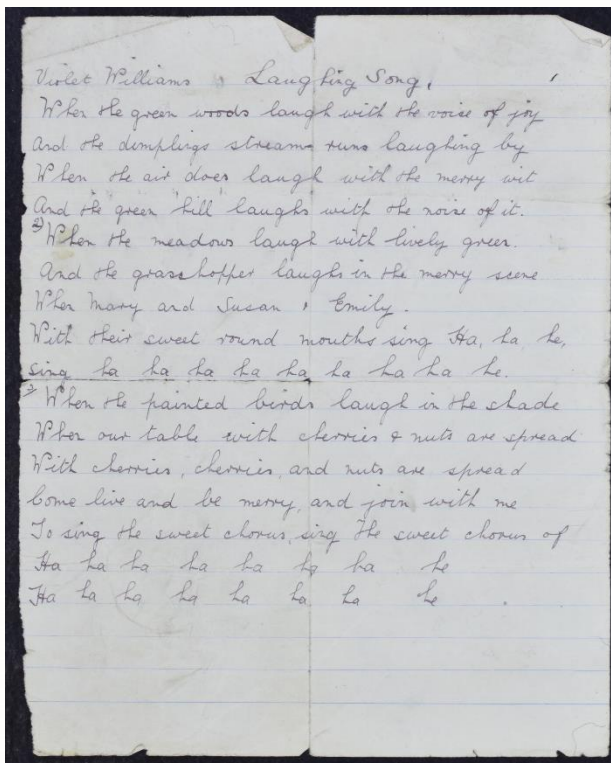 Violet Williams, Laughing Song,
When the green woods laugh with the voice of joy
And the dimplings stream runs laughing by
When the air does laugh with the merry wit
And the green hill laughs with the noise of it.
2) When the meadows laugh with lively green.
And the grasshopper laughs in the merry scene
When Mary and Susan, Emily.
With their sweet round mouths sing Ha, ha, he,
Sing ha ha ha ha ha ha ha ha he.
3) When the painted birds laugh in the shade
When our table with cherries & nuts are spread
With cherries, cherries, and nuts are spread
Come live and be merry, and join with me
To sing the sweet chorus, sing the sweet chorus of
Ha ha ha ha ha ha ha he
Ha ha ha ha ha ha ha he